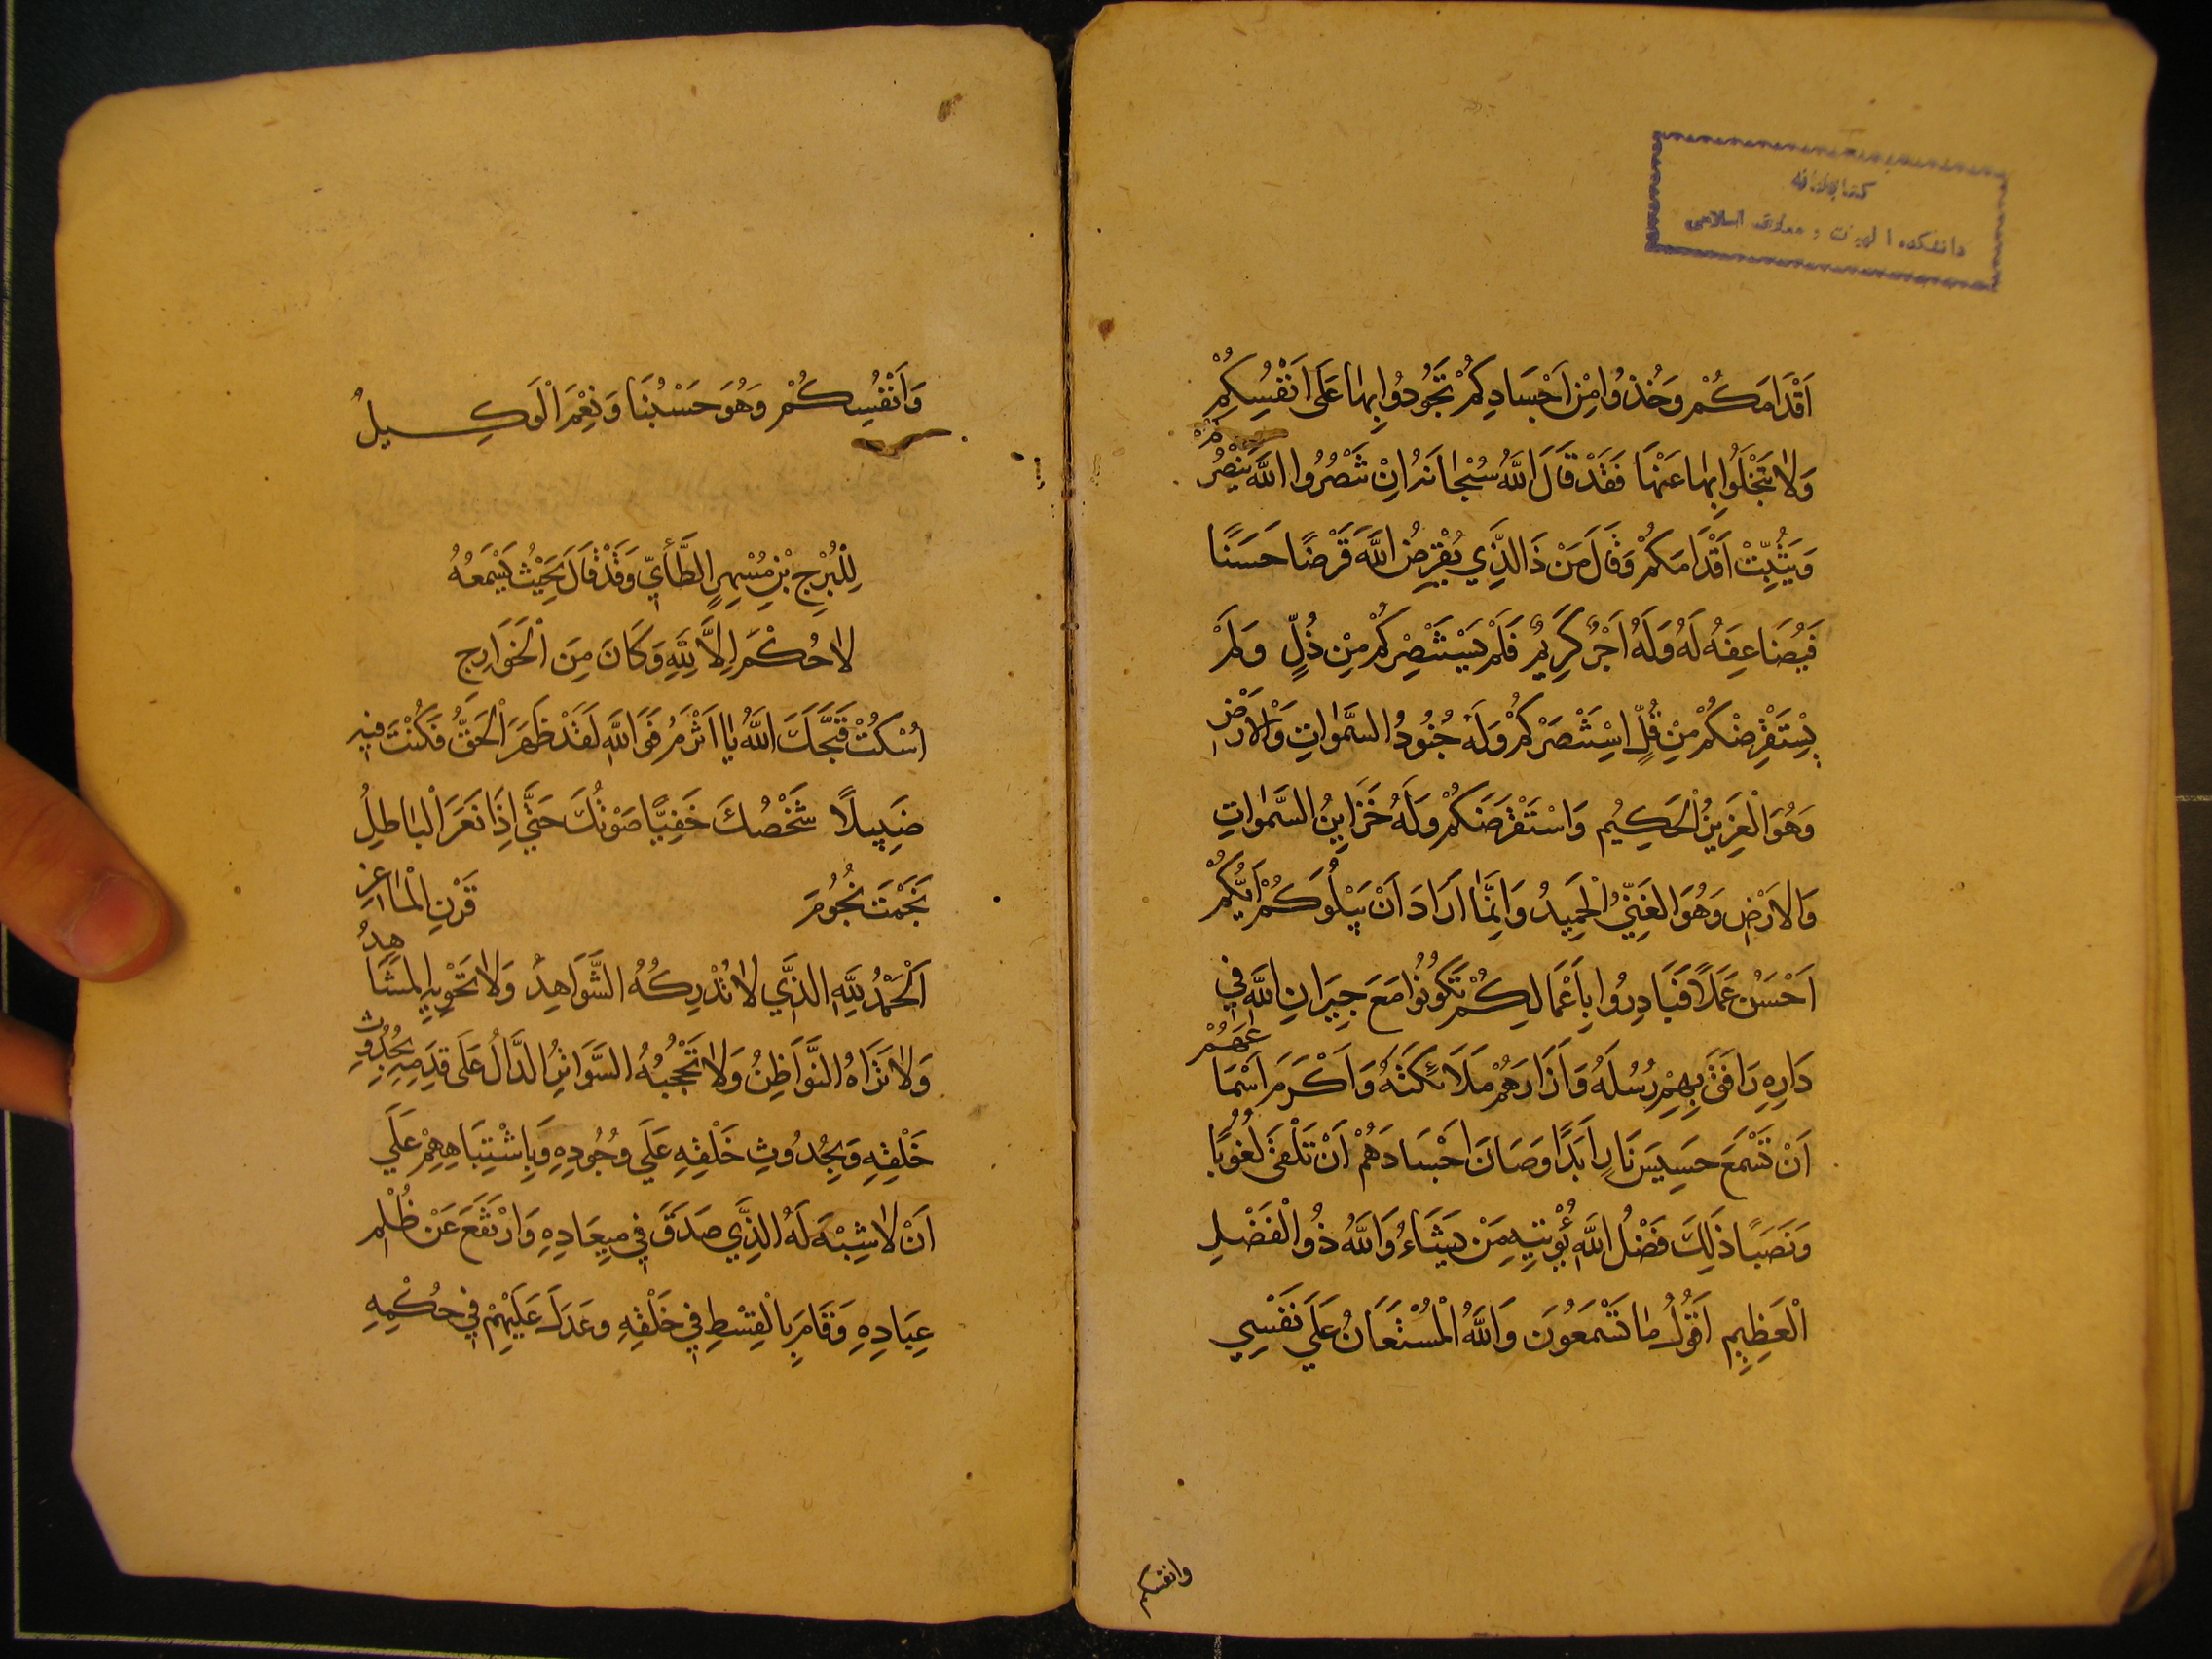 كتابخانه
دانشكده الهيات و معارف اسلامى
اَقْدَامَكُمْ وَخُذُوا مِنْ اَجْسَادِكُمْ تَجُودُوا بِهَا عَلَى اَنْفُسِكُمْ
وَلَا تَبْخَلُوا بِهَا عَنْهَا فَقَدْ قَالَ اللَّهُ سُبْحَانَهُ اِنْ تَنْصُرُوا اللَّهَ يَنْصُرْكُمْ
وَيُثَبِّتْ اَقْدَامَكُمْ وَقَالَ مَنْ ذَا الَّذِي يُقْرِضُ اللَّهَ قَرْضًا حَسَنًا
فَيُضَاعِفَهُ لَهُ وَلَهُ اَجْرٌ كَرِيمٌ فَلَمْ يَسْتَنْصِرْكُمْ مِنْ ذُلٍّ وَلَمْ
يَسْتَقْرِضْكُمْ مِنْ قُلٍّ اِسْتَنْصَرَكُمْ وَلَهُ جُنُودُ السَّمٰوَاتِ وَالْاَرْضِ
وَهُوَ الْعَزِيزُ الْحَكِيمُ وَاسْتَقْرَضَكُمْ وَلَهُ خَزَايِنُ السَّمٰوَاتِ
وَالْاَرْضِ وَهُوَ الْغَنِيُّ الْحَمِيدُ وَاِنَّمَا اَرَادَ اَنْ يَبْلُوَكُمْ اَيُّكُمْ
اَحْسَنُ عَمَلًا فَبَادِرُوا بِاَعْمَالِكُمْ تَكُونُوا مَعَ جِيرَانِ اللَّهِ فِي
دَارِهِ رَافَقَ بِهِمْ رُسُلَهُ وَاَزَارَهُمْ مَلَائِكَتَهُ وَاَكْرَمَ اَسْمَاعَهُمْ
اَنْ تَسْمَعَ حَسِيسَ نَارٍ اَبَدًا وَصَانَ اَجْسَادَهُمْ اَنْ تَلْقَى لُغُوبًا
وَنَصَبًا ذَلِكَ فَضْلُ اللَّهِ يُؤْتِيهِ مَنْ يَشَاءُ وَاللَّهُ ذُو الْفَضْلِ
الْعَظِيمِ اَقُولُ مَا تَسْمَعُونَ وَاللَّهُ الْمُسْتَعَانُ عَلَى نَفْسِي
وانفسكم
وَاَنْفُسِكُمْ وَهُوَ حَسْبُنَا وَنِعْمَ الْوَكِيلُ
لِلْبُرْجِ بْنِ مُسْهِرٍ الطَّائِيِّ وَقَدْ قَالَ بِحَيْثُ يَسْمَعُهُ
لَا حُكْمَ اِلَّا لِلَّهِ وَكَانَ مِنَ الْخَوَارِجِ
اُسْكُتْ قَبَّحَكَ اللَّهُ يَا اَثْرَمُ فَوَاللَّهِ لَقَدْ ظَهَرَ الْحَقُّ فَكُنْتَ فِيهِ
ضَئِيلًا شَخْصُكَ خَفِيًّا صَوْتُكَ حَتَّى اِذَا نَعَرَ الْبَاطِلُ
نَجَمْتَ نُجُومَ قَرْنِ الْمَاعِزِ
اَلْحَمْدُ لِلَّهِ الَّذِي لَا تُدْرِكُهُ الشَّوَاهِدُ وَلَا تَحْوِيهِ الْمَشَاهِدُ
وَلَا تَرَاهُ النَّوَاظِرُ وَلَا تَحْجُبُهُ السَّوَاتِرُ الدَّالُّ عَلَى قِدَمِهِ بِحُدُوثِ
خَلْقِهِ وَبِحُدُوثِ خَلْقِهِ عَلَى وُجُودِهِ وَبِاشْتِبَاهِهِمْ عَلَى
اَنْ لَا شِبْهَ لَهُ الَّذِي صَدَقَ فِي مِيعَادِهِ وَارْتَفَعَ عَنْ ظُلْمِ
عِبَادِهِ وَقَامَ بِالْقِسْطِ فِي خَلْقِهِ وَعَدَلَ عَلَيْهِمْ فِي حُكْمِهِ